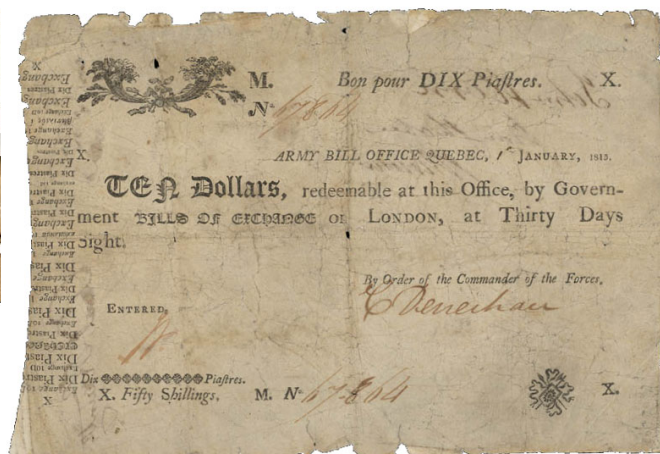 M. Bon pour DIX Piaſtres. X.
Nº 67864
X. ARMY BILL OFFICE QUEBEC, 1st JANUARY, 1815.
TEN Dollars, redeemable at this Office, by Govern-
ment BILLS OF EXCHANGE on LONDON, at Thirty Days
Sight.
By Order of the Commander of the Forces,
ENTERED,
Dix Piaſtres.
X. Fifty Shillings. M. Nº 67864 X.